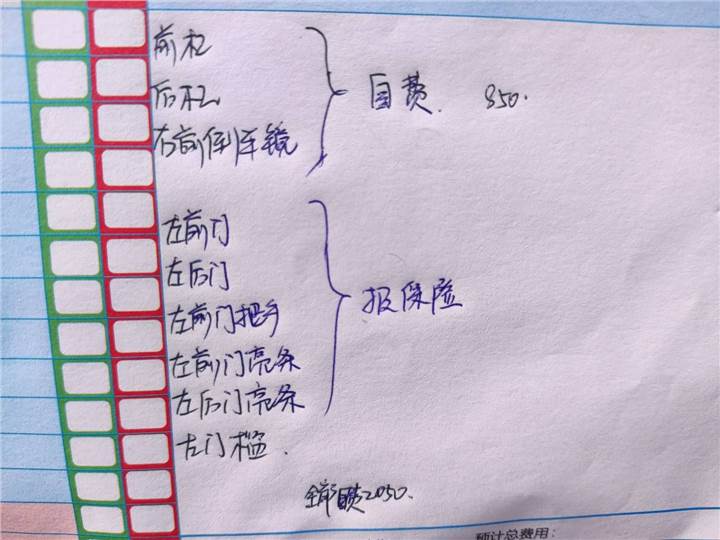 前杠
后杠
右前倒车镜
自费. 850.
左前门
左后门
左前门把手
左前门亮条
左后门亮条
报保险
左门槛.
全部自费2050.
预计总费用：